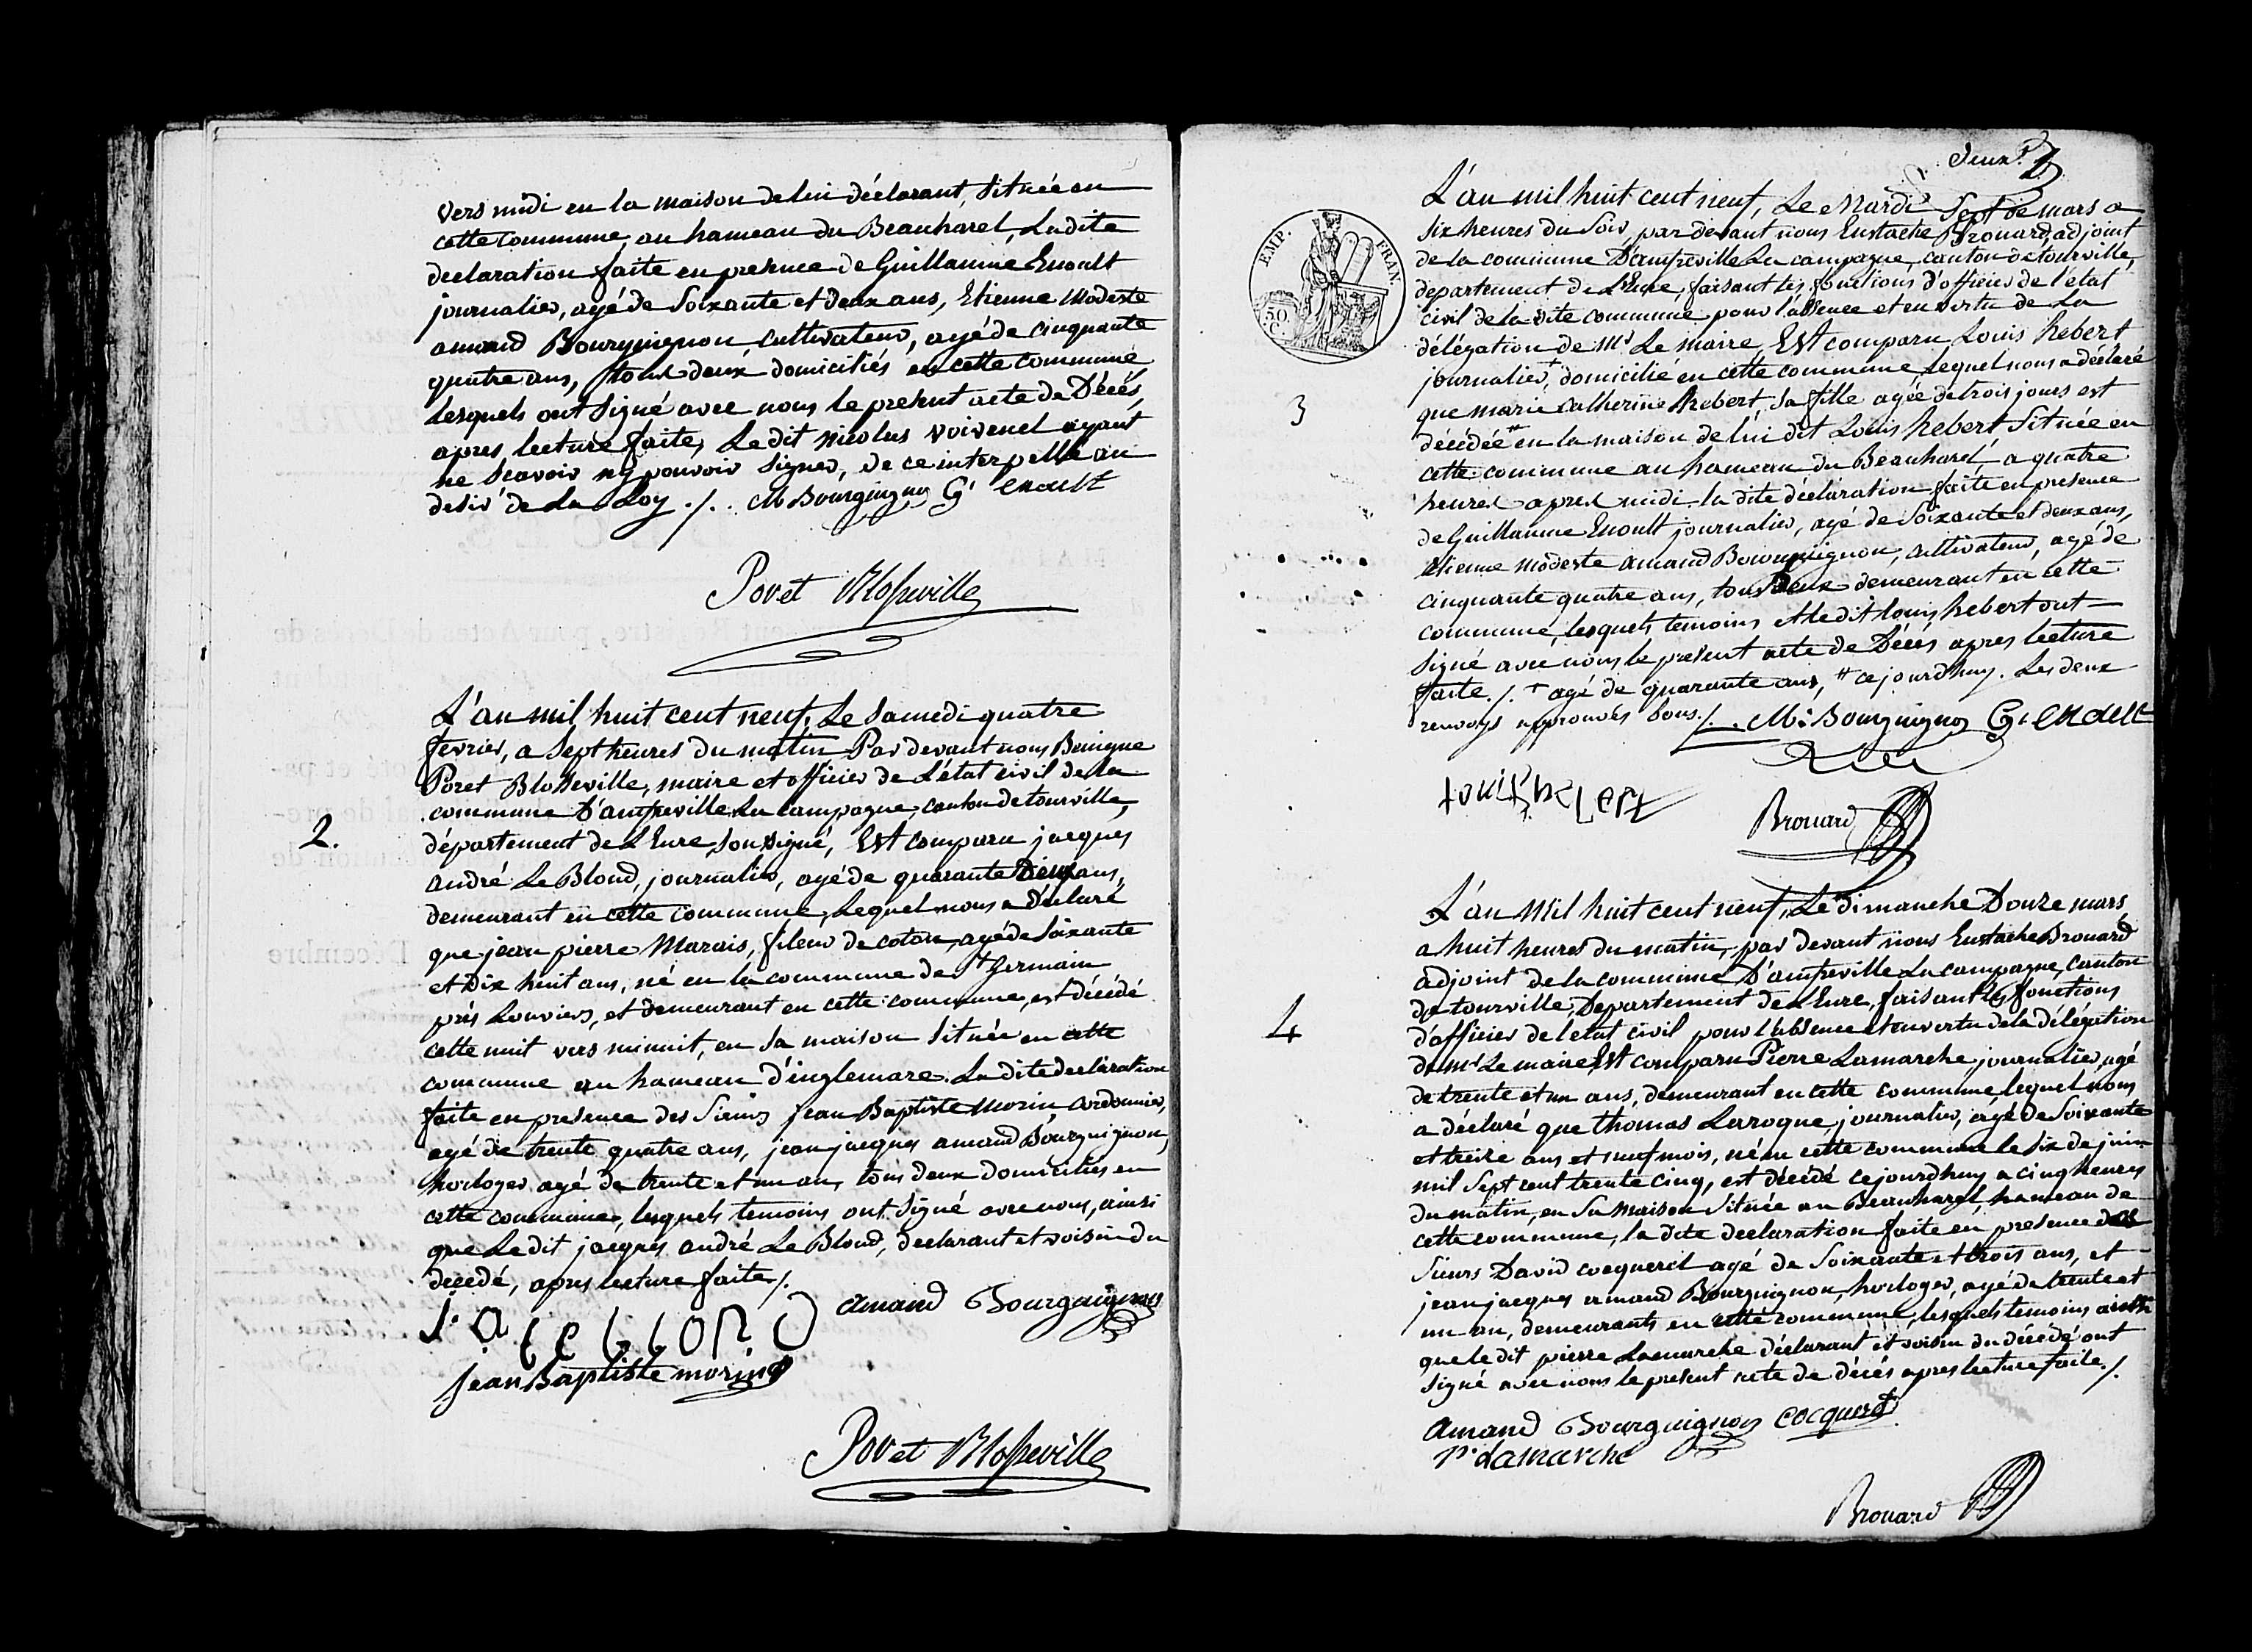 vers midi en la maison de lui déclarant, Située en
cette commune, au hameau du Beauharel, Ladite
declaration faite en presence de Guillaume Enoult
journalier, agé de Soixante et deux ans, Etienne Modeste
amand Bourguignon, Cultivateur, agé de cinquante
quatre ans, tous deux domiciliés en cette commune
Lesquels ont Signé avec nous le present acte de Décés,
apres lecture faite, Le dit nicolas Voivenel ayant
ne Scavoir ny pouvoir Signer, de ce interpellé au
desir de La Loy ./. M Bourguignon G' enoult
Poret Blosseville
L'an mil huit cent neuf, Le Samedi quatre
fevrier, a Sept heures du matin Par devant nous Benigne
Poret Blosseville, maire et officier de L'état civil de la
commune D'amfreville La Campagne, canton de tourville,
département de L'Eure, Soussigné, Est comparu jacques
andré Le Blond, journalier, agé de quarante Deux ans,
demeurant en cette commune, Lequel nous a Déclaré
que jean pierre Marais, fileur de coton, agé de Soixante
et Dix huit ans, né en la commune de St germain
prés Louviers, et demeurant en cette commune, est décédé
cette nuit vers minuit, en Sa maison Située en cette
commune au hameau d'inglemare. La dite declaration
faite en presence des Sieurs jean Baptiste Morin, Cordonnier,
agé de trente quatre ans, jean jacques amand Bourguignon,
horloger agé de trente et un an, tous deux domiciliés en
cette commune, lesquels temoins ont Signé avec nous, ainsi
que Le dit jacques andré Le Blond, declarant et voisin du
decedé, apres lecture faite ./.
2.
J. a le blond amand Bourguignon
jean Baptiste morin
Poret Blosseville
deux.
L'an mil huit cent neuf, Le Mardi Sept de mars a
Six heures du Soir, par devant nous Eustache Brouard, adjoint
de la commune D'amfreville La campagne, canton de tourville,
departement de L'Eure, faisant les fonctions d'officier de l'etat
civil de la dite commune pour l'absence et en vertu de La
délégation de Mr Le maire, Est comparu Louis hebert
journalier,+ domicilié en cette commune, Lequel nous a déclaré
que marie Catherine hebert, Sa fille agée de trois jours est
décédée ++ en la maison de lui dit Louis hebert Située en
cette commune au hameau du Beauharel, a quatre
heures apres midi. la dite déclaration faite en presence
de Guillaume Enoult journalier, agé de Soixante et deux ans,
etienne modeste amand Bourguignon, cultivateur, agé de
cinquante quatre ans, tous Deux demeurant en cette
commune, lesquels temoins et le dit louis hebert ont
Signé avec nous le present acte de Décés apres lecture
faite ./. + agé de quarante ans, ++ cejourdhuy. Les deux
renvoys approuvés bons ./. M: Bourguignon G. enoult
EMP. FRAN.
50 C.
3
louis hebert
Brouard
L'an Mil huit cent neuf, Le Dimanche Douze mars
a huit heures du matin, par devant nous Eustache Brouard
adjoint de la commune D'amfreville La campagne, canton
de tourville, Departement de L'Eure, faisant les fonctions
d'officier de l'état civil pour l'absence et en vertu de la délégation
de Mr Le maire, Est comparu Pierre Lamarche, journalier, agé
de trente et un ans, demeurant en cette commune, lequel nous
a déclaré que thomas Laroque, journalier, agé de Soixante
et treize ans et neuf mois, né en cette commune le Six de juin
mil Sept cent trente cinq, est décédé cejourdhuy a cinq heures
du matin, en Sa maison Située au Beauharel, hameau de
cette commune, la dite declaration faite en presence des
Sieurs David cocquerel agé de Soixante et trois ans, et
jean jacques amand Bourguignon, horloger, agé de trente et
un an, demeurants en cette commune, lesquels temoins ainsi
que le dit pierre Lamarche déclarant et voisin du décédé ont
Signé avec nous le present acte de Décés apres lecture faite ./.
4
amand Bourguignon cocquerel
P. Lamarche
Brouard